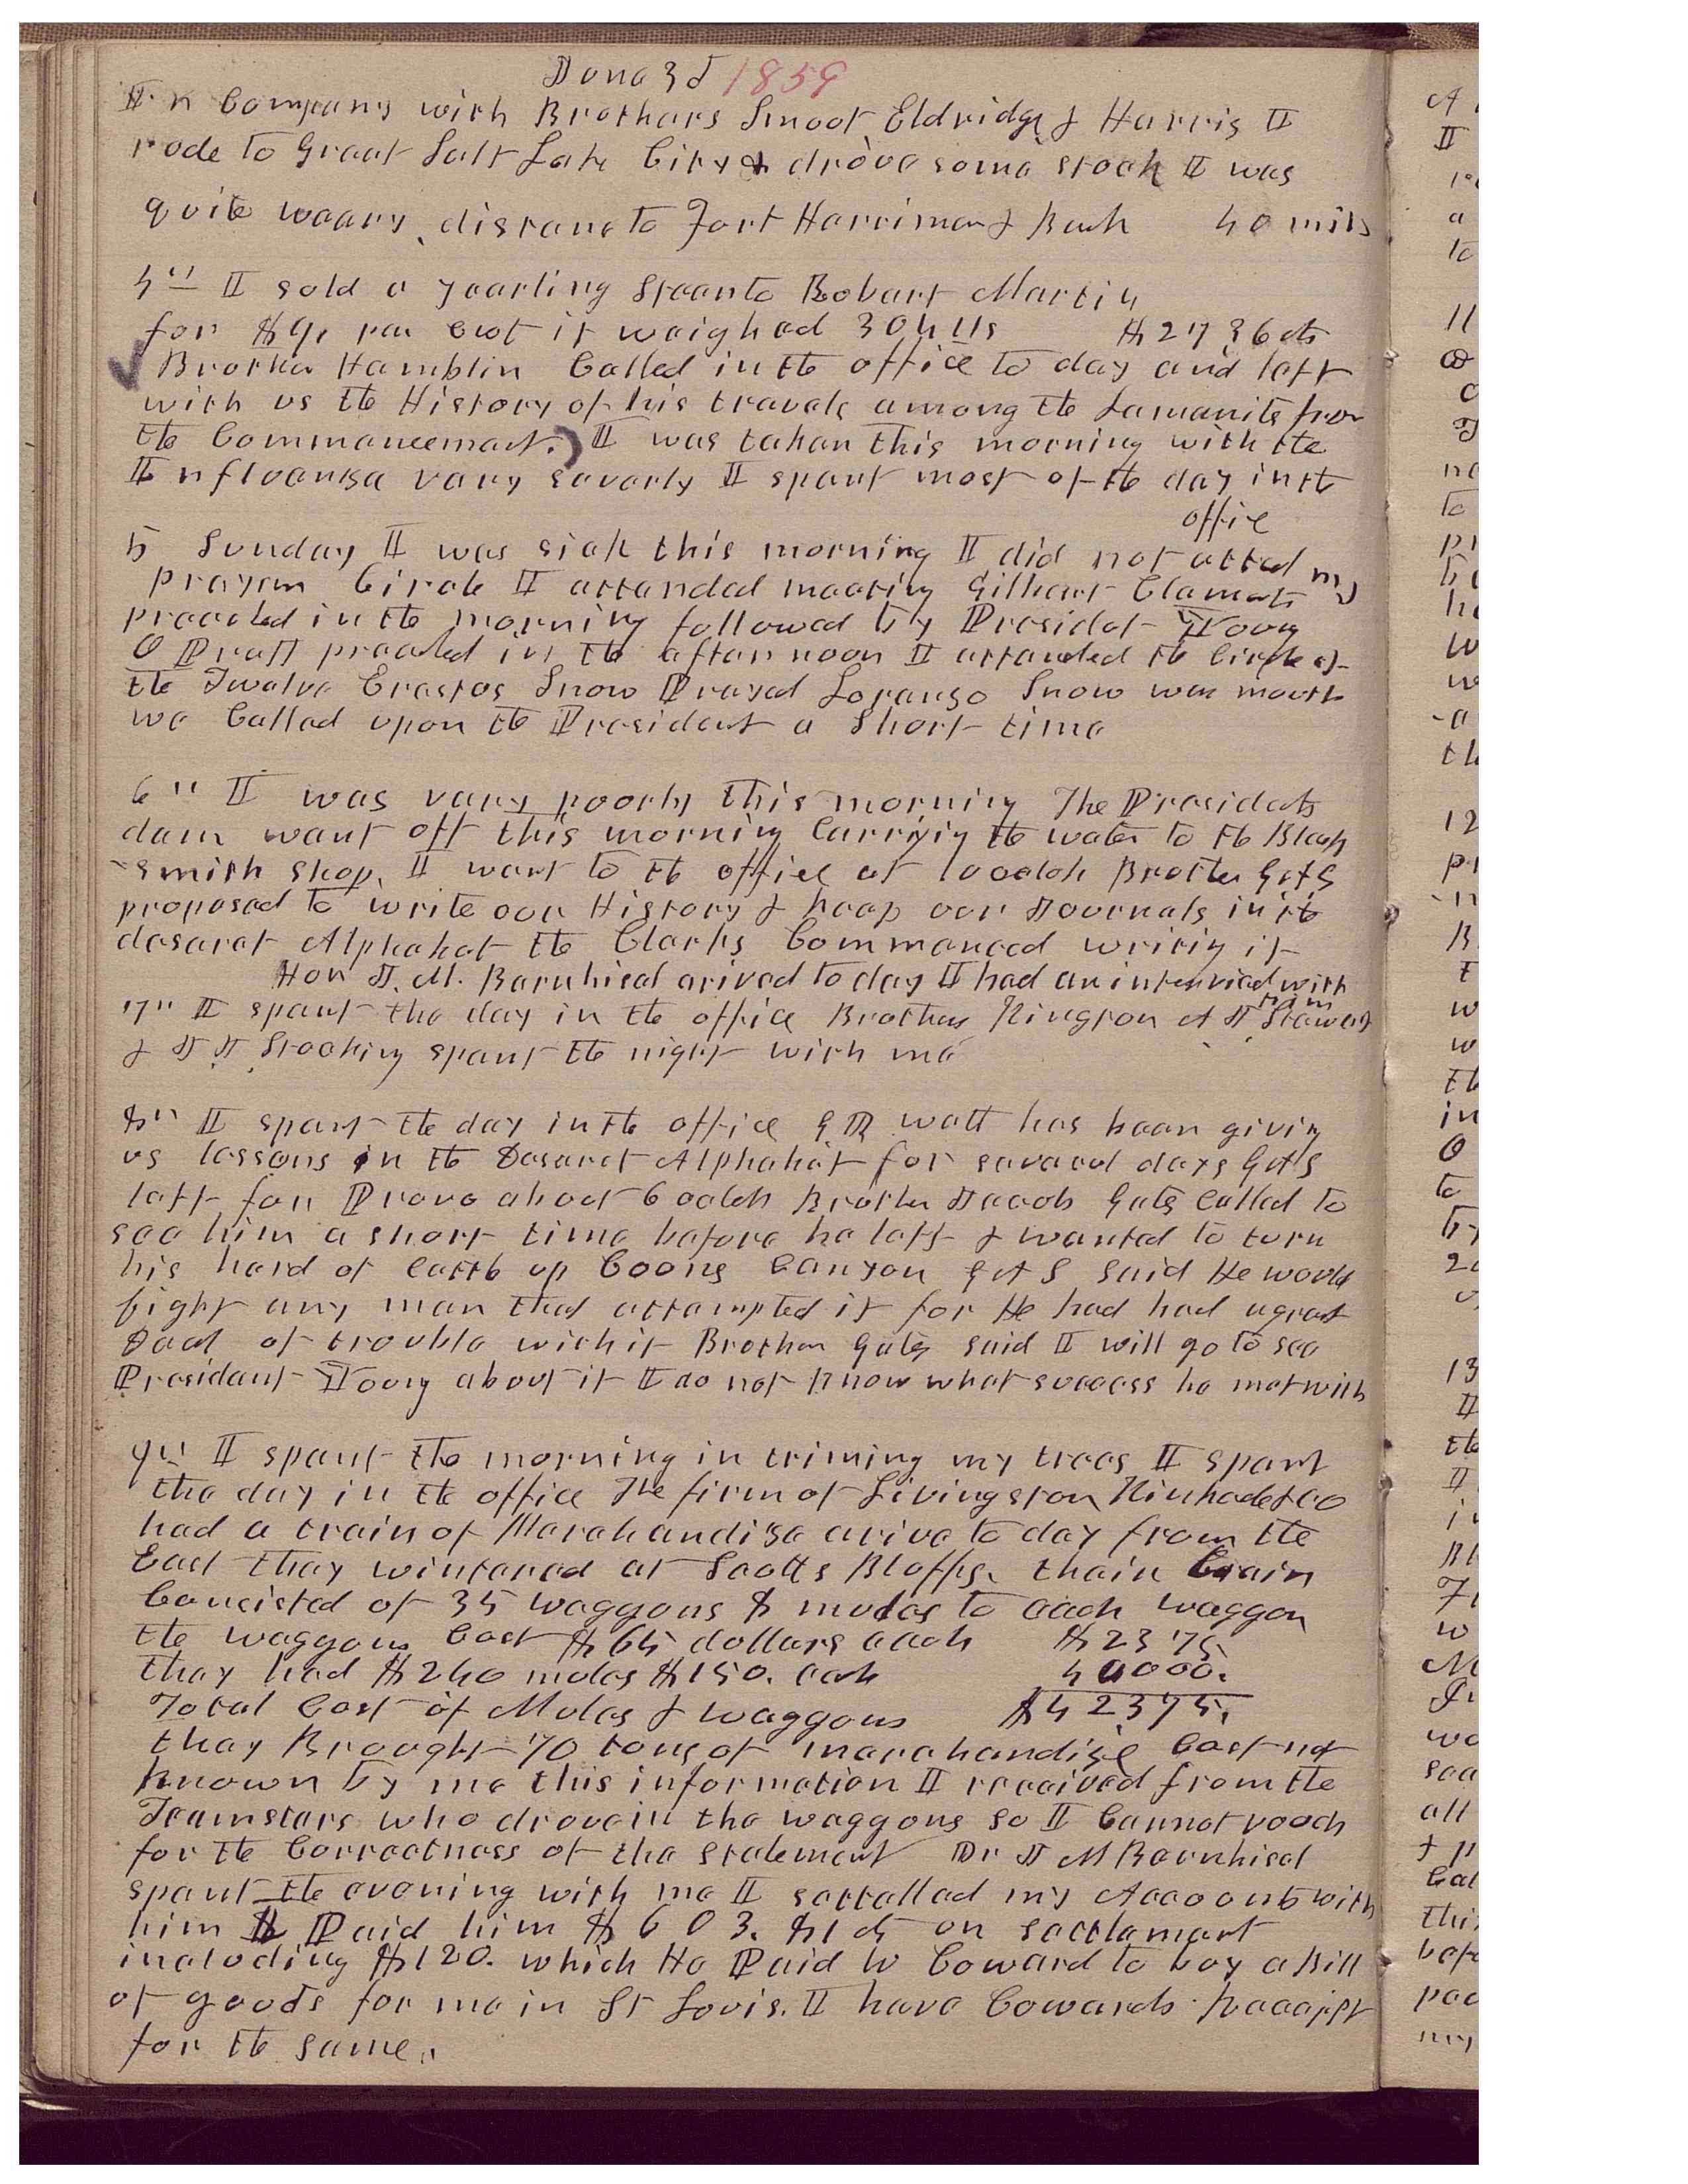 June 3d 1859
In Company with Brothers Smoot Eldridge & Harris I
rode to Great Salt Lake City & drove some stock I was
quite weary. distance to Fort Harriman & Back 40 mils
4th I sold a yearling Steer to Robart Martin
for $9, per cwt it weighed 304 lbs $27 36 cts
Brother Hamblin Called in the office to day and left
with us the History of his travels among the Lamanits from
the Commencement.) I was taken this morning with the
Influenza very severly I spent most of the day in the
office
5 Sunday I was sick this morning I did not atted my
prayer Circle I attended meeting Gilbert Clements
preached in the morning followed by Presidet Young
O Pratt preached in the afternoon I attended the Circle of
the Twelve Erastus Snow Prayed Loranzo Snow was mouth
we Called upon the President a Short time
6" I was very poorly this morning The Presidets
dam went off this morning Carrying the water to the Black
-smith shop, I went to the office at 10 oclok Brother G A S
proposed to write our History & keep our Journals in the
deseret Alphabet the Clerks Commenced writing it
Hon J. M. Bernhisel arived to day I had an interview with
him
7" I spent the day in the office Brothers Kington A J Stewart
& J J Stocking spent the night with me
8" I spent the day in the office G D watt has been giving
us lessons in the Deseret Alphabet for several days G A S
left for Provo about 6 oclok Brother Jacob Gates Called to
see him a short time before he left & wanted to turn
his herd of Cattle up Coons Canyon G A S Said He would
fight any man that attempted it for He had had a great
Deal of trouble with it Brother Gates said I will go to see
President Young about it I do not know what success he met with
9th I spent the morning in triming my trees I spent
the day in the office The firm of Livingston Kinkade & Co
had a train of Merchandize arive to day from the
East they wintered at Scotts Bluffs, their train
Concisted of 35 waggons 8 mules to each waggon
the waggons Cost $65 dollars each $2375
they had $240 mules $150. each 40000.
Total Cost of Mules & waggons $42375,
they Brought 70 tons of merchandize Cost not
known by me this information I received from the
Teamsters who drove in the waggons so I Cannot vouch
for the Correctness of the statement Dr J M Bernhisel
spent the evening with me I setteled my Accounts with
him & Paid him $603. 81 cts on settlement
including $120. which He Paid W Coward to buy a Bill
of goods for me in St Louis. I have Cowards Receipt
for the same.